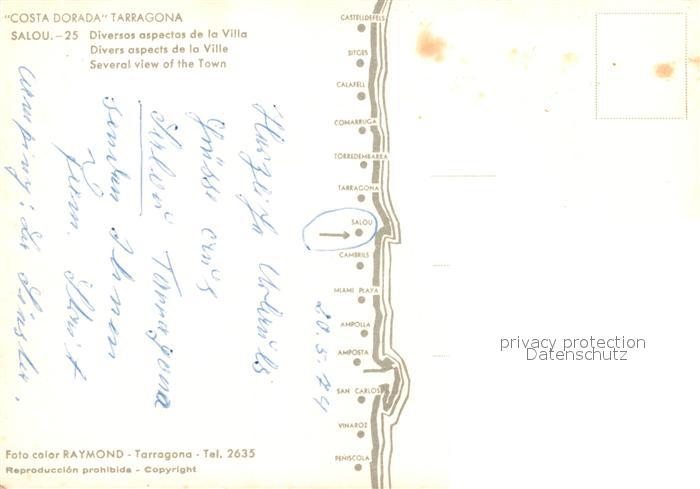 "COSTA DORADA" TARRAGONA
SALOU.-25 Diversos aspectos de la Villa
Divers aspects de la Ville
Several view of the Town
CASTELLDEFELS
SITGES
CALAFELL
COMARRUGA
TORREDEMBARRA
TARRAGONA
SALOU
CAMBRILS
MIAMI PLAYA
AMPOLLA
AMPOSTA
SAN CARLOS
VINAROZ
PEÑISCOLA
20.5-74
Herzliche Urlaubs
Grüsse aus
Salou Tarragona
senden Ihnen
Fam.
Camping:
privacy protection
Datenschutz
Foto color RAYMOND - Tarragona - Tel. 2635
Reproducción prohibida - Copyright